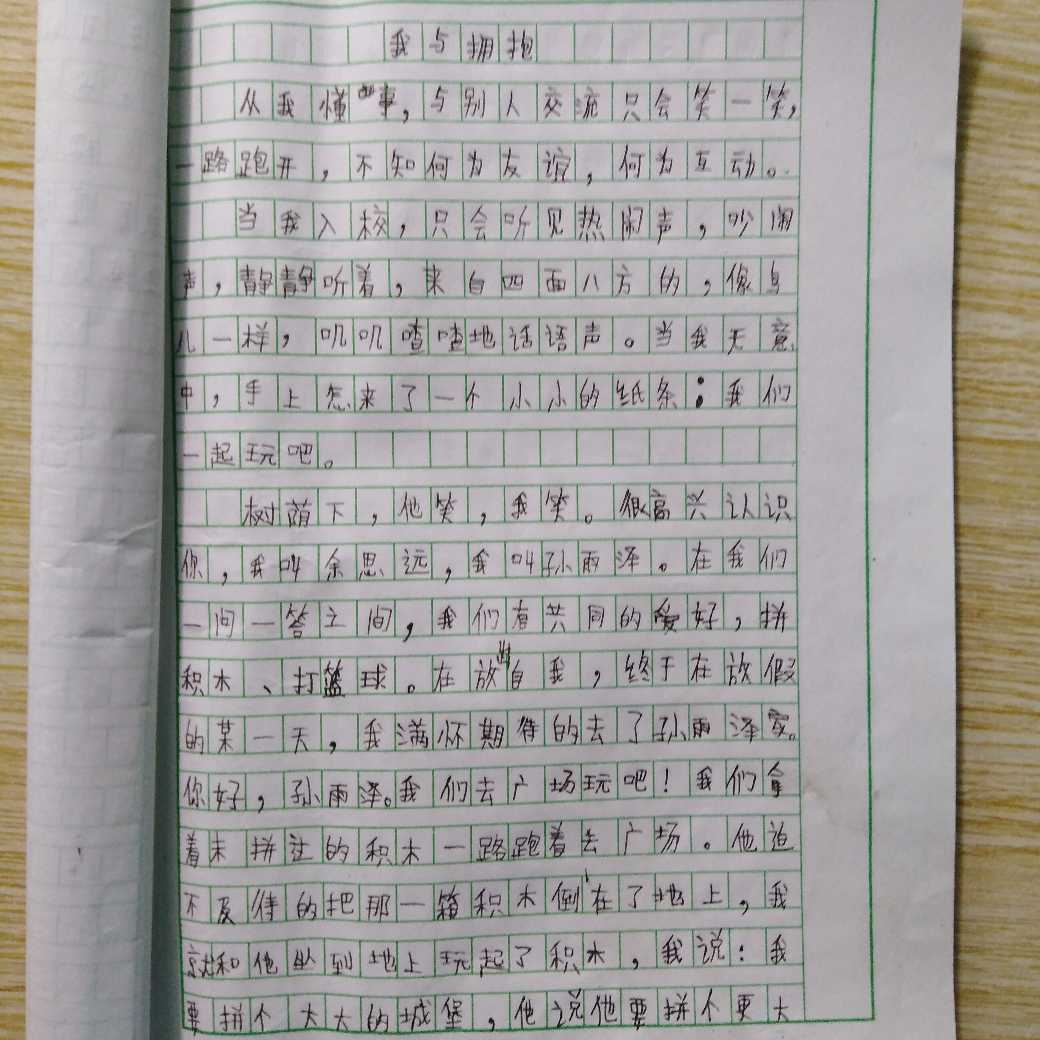 我与拥抱
从我懂事,与别人交流只会笑一笑,
一路跑开,不知何为友谊,何为互动。
当我入校,只会听见热闹声,吵闹
声,静静听着,来自四面八方的,像鸟
儿一样,叽叽喳喳地话语声。当我无意
中,手上怎来了一个小小的纸条:我们
一起玩吧。
树荫下,他笑,我笑。很高兴认识
你,我叫余思远,我叫孙雨泽。在我们
一问一答之间,我们有共同的爱好,拼
积木、打篮球。在放自我,终于在放假
的某一天,我满怀期待的去了孙雨泽家。
你好,孙雨泽。我们去广场玩吧!我们拿
着未拼过的积木一路跑着去广场。他迫
不及待的把那一箱积木倒在了地上,我
就和他坐到地上玩起了积木,我说:我
要拼个大大的城堡,他说他要拼个更大